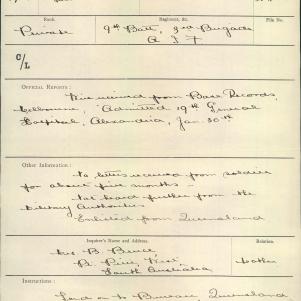 Rank.
Regiment, &c.
File No.
Private
9th Batt, 3rd Brigade
A I F
C/L
OFFICIAL REPORTS:
received from Base Records,
Melbourne, "Admitted 19th General
Hospital, Alexandria, Jan. 30th
Other Information:
No letters received from soldier
for about five months -
Not heard further from the
Military Authorities
Enlisted from Queensland
Inquirer's Name and Address.
Relation.
Mrs B.
B. Pine
South Australia
Mother
Instructions:
Send on to Bureau Queensland